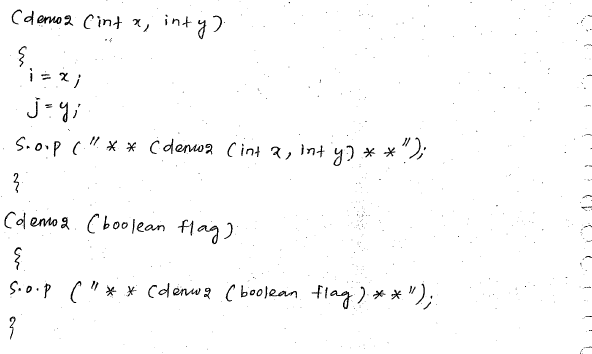 Cdemo2 (int x, int y)
{
i = x;
j = y;
S.o.p ("* * Cdemo2 (int x, int y) * *");
}
Cdemo2 (boolean flag)
{
S.o.p ("* * Cdemo2 (boolean flag) * *");
}